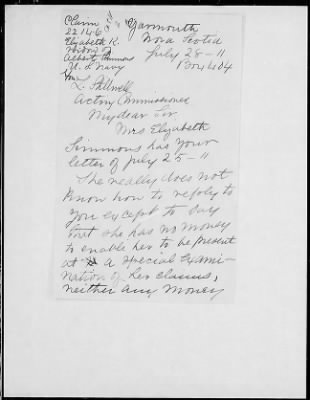 Claim
22146
Elizabeth K.
widow of
Albert Simmons
U.S. Navy
Yarmouth
Nova Scotia
July 28-11
Box 404
Hon
L. Stillwell
Acting Commissioner
My dear Sir
Mrs Elizabeth
Simmons has your
letter of July 25-11
She really does not
know how to reply to
you except to say
that she has no money
to enable her to be present
at a special Exami-
nation of her claims,
neither any money